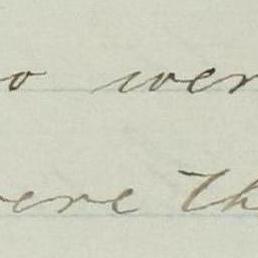 o wer
vere th